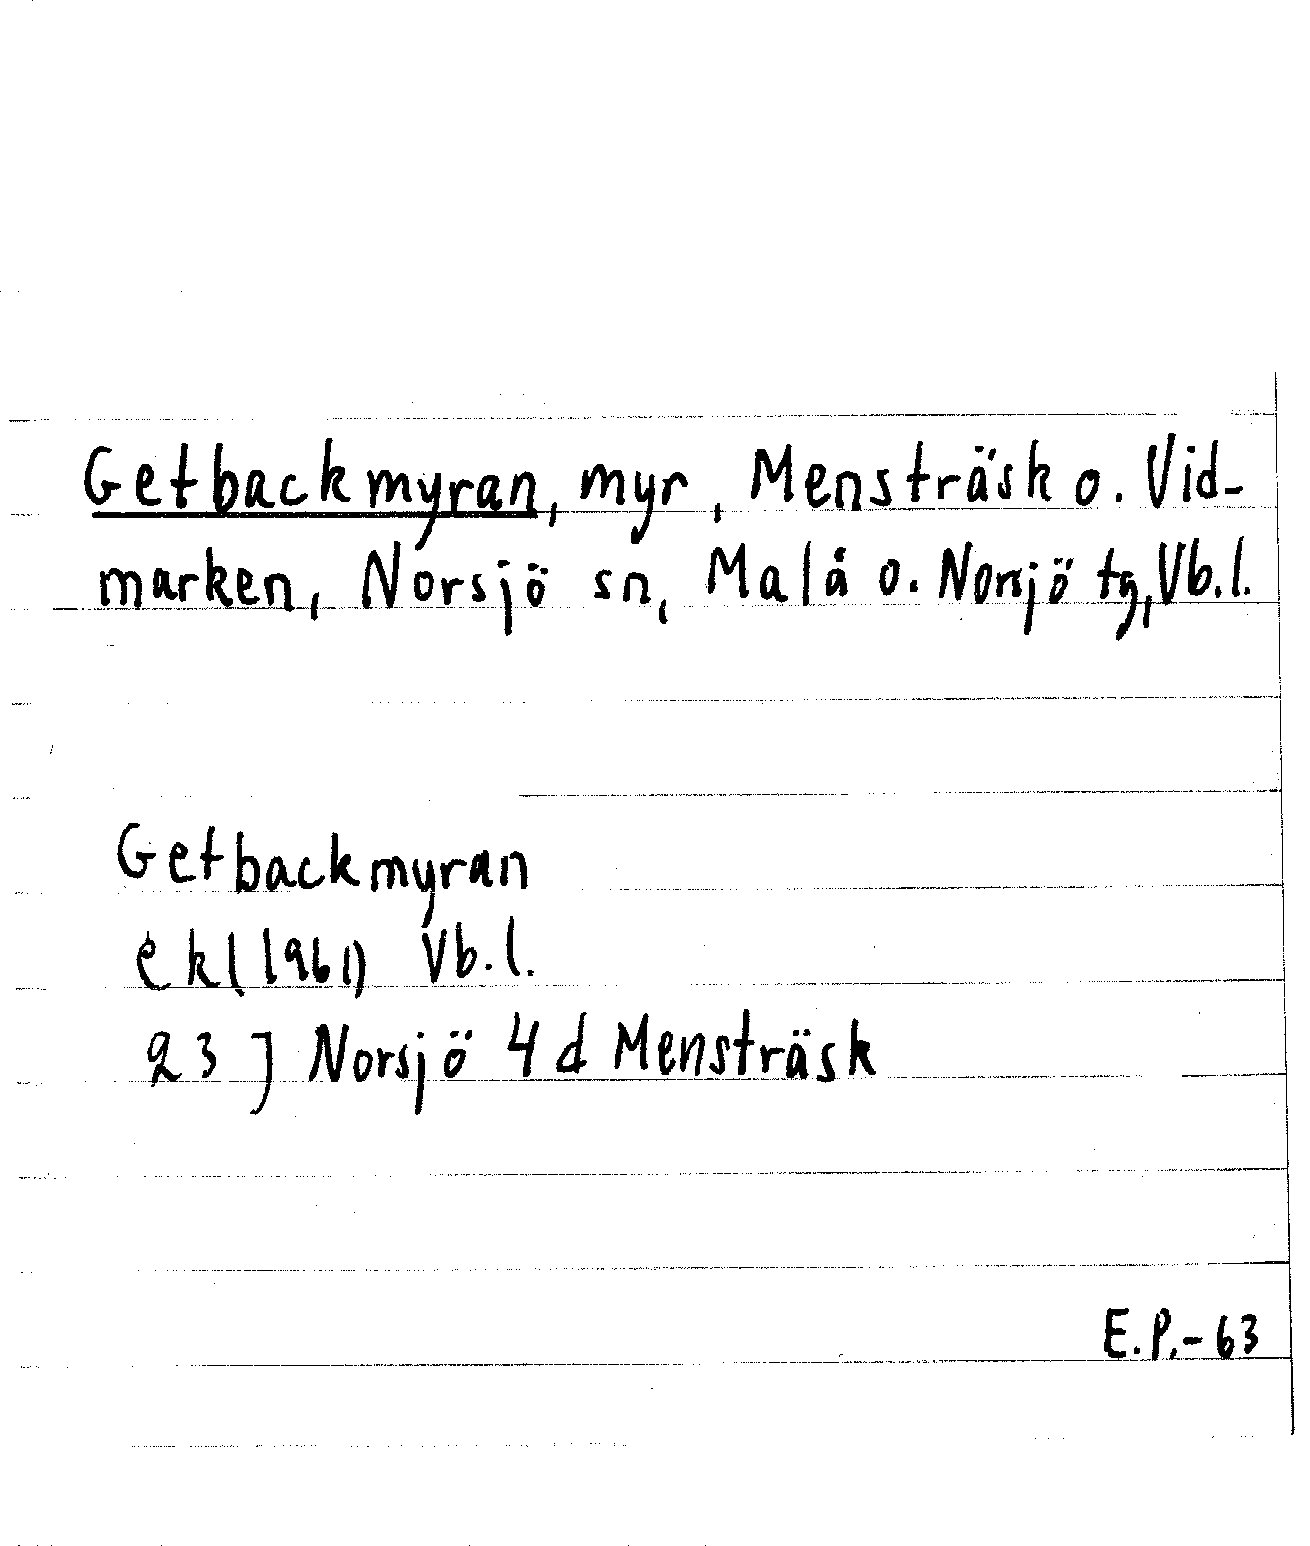 Getbackmyran, myr, Mensträsk o. Vid-
marken, Norsjö sn, Malå o. Norsjö tg, Vb.l.
Getbackmyran
ek(1961) Vb.l.
23 J Norsjö 4 d Mensträsk
E.P.-63